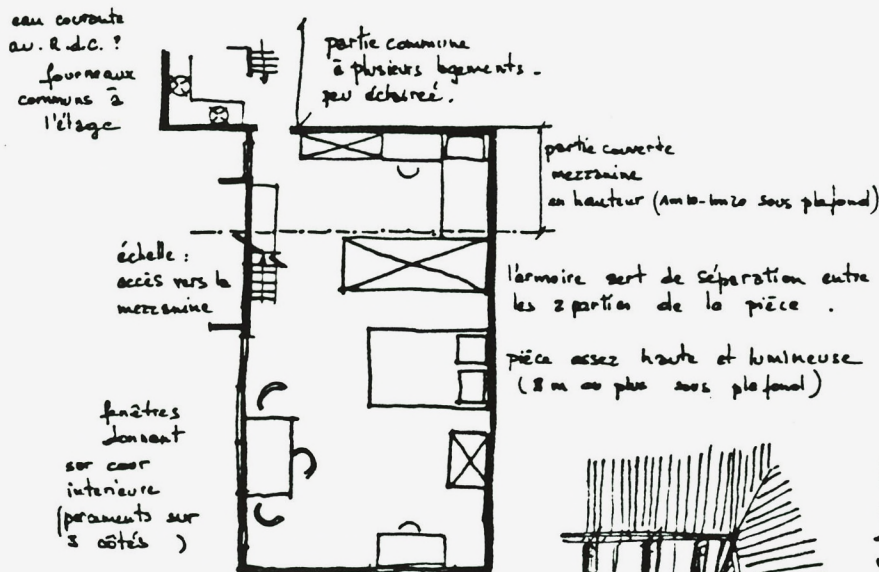 eau courante
au R.d.c. ?
fourneaux
communs à
l'étage
partie commune
à plusieurs logements.
peu éclairée.
partie couverte
mezzanine
en hauteur (1m10-1m20 sous plafond)
échelle :
accès vers la
mezzanine
l'armoire sert de séparation entre
les 2 parties de la pièce .
pièce assez haute et lumineuse
( m ou plus sous plafond)
fenêtres
donnant
sur cour
interieure
(parements sur
3 côtés )